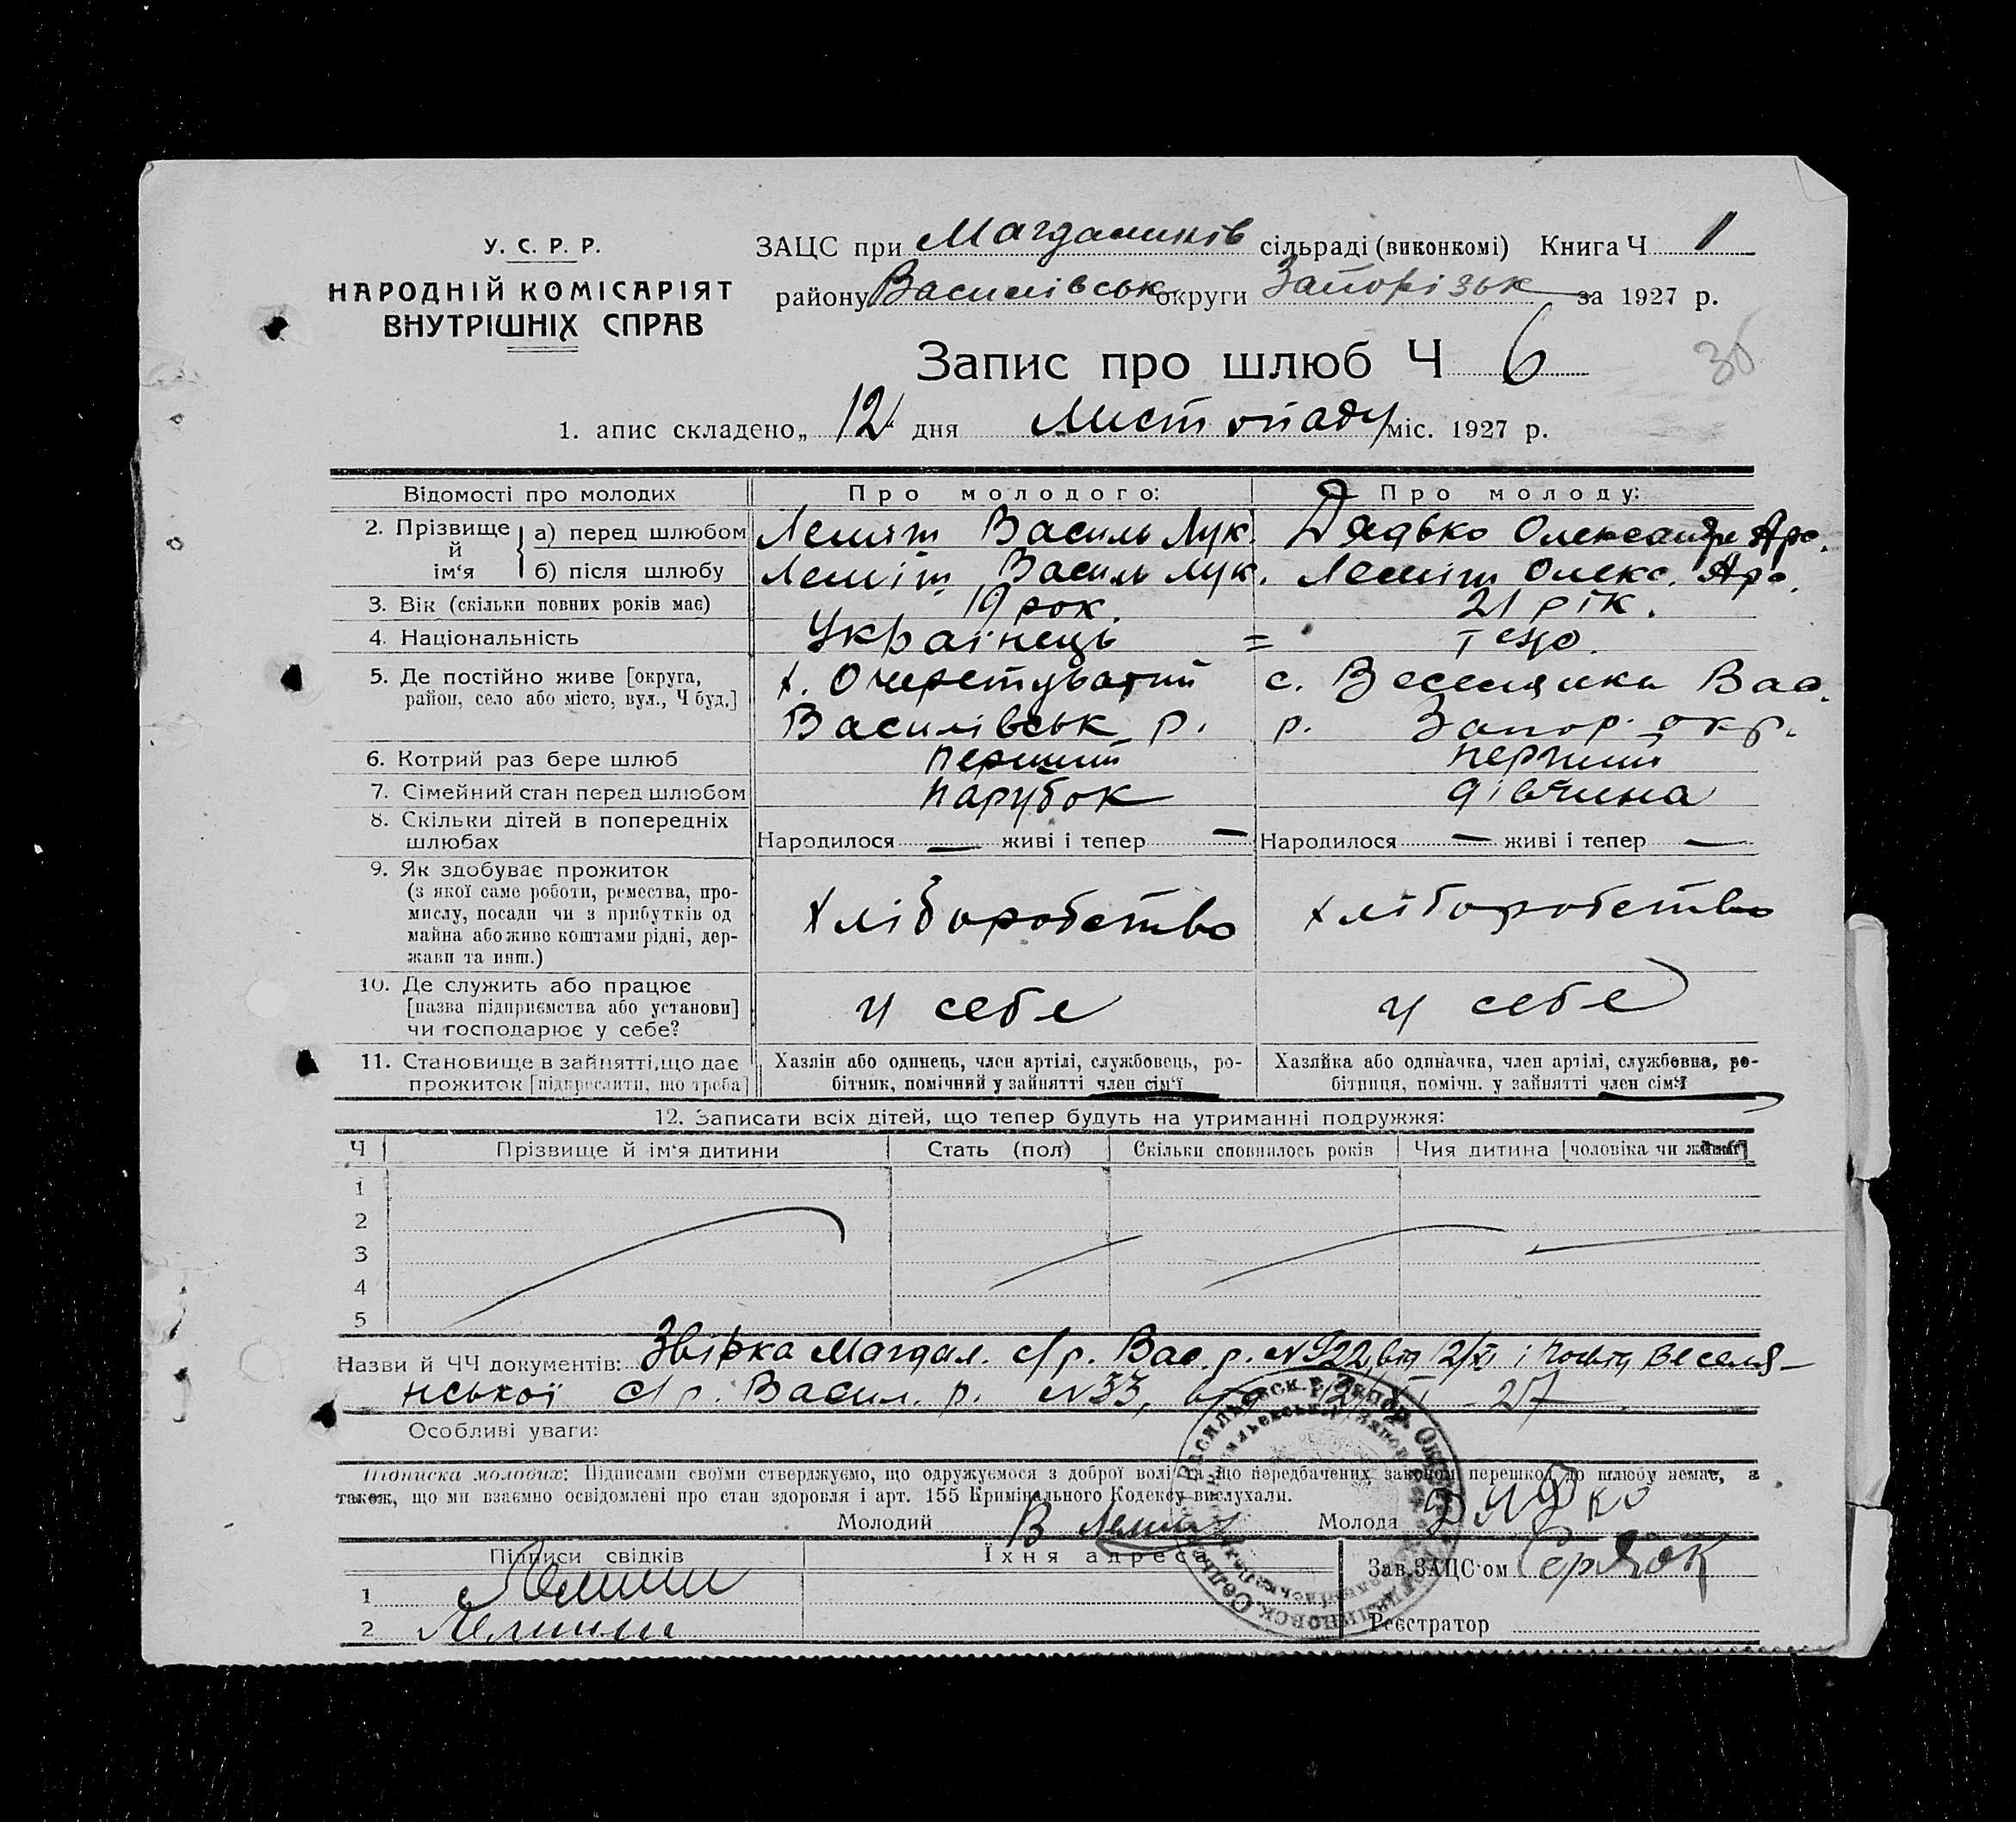 У. С. Р. Р.
НАРОДНІЙ КОМІСАРІЯТ
ВНУТРІШНІХ СПРАВ
ЗАЦС при Магдалинів сільраді (виконкомі) Книга Ч 1
району Василівськ округи Запорізьк за 1927 р.
Запис про шлюб Ч 6
36
1. апис складено „12“ дня Листопаду міс. 1927 р.
Відомості про молодих
Про молодого:
Про молоду:
2. Прізвище й ім‘я
а) перед шлюбом
Лемішь Василь Лук.
Дядько Олександра Аро.
б) після шлюбу
Леміш Василь Лук.
Леміш Олекс. Аро.
3. Вік (скільки повних років має)
19 рок.
21 рік.
4. Національність
Українець
= тежо.
5. Де постійно живе [округа,
район, село або місто, вул., Ч буд.]
х. Очеретуватий
Василівськ р.
с. Веселянка Вас.
р. Запор. окр.
6. Котрий раз бере шлюб
перший
перший
7. Сімейний стан перед шлюбом
парубок
дівчина
8. Скільки дітей в попередніх
шлюбах
Народилося — живі і тепер —
Народилося — живі і тепер —
9. Як здобуває прожиток
(з якої саме роботи, ремества, про-
мислу, посади чи з прибутків од
майна або живе коштами рідні, дер-
жави та инш.)
хліборобство
хліборобство
10. Де служить або працює
[назва підприємства або установи]
чи господарює у себе?
у себе
у себе
11. Становище в зайнятті, що дає
прожиток [підкреслити, що треба]
Хазяїн або одинець, член артілі, службовець, ро-
бітник, помічний у зайнятті член сім‘ї
Хазяйка або одиначка, член артілі, службовна, ро-
бітниця, помічн. у зайнятті член сім‘ї
12. Записати всіх дітей, що тепер будуть на утриманні подружжя:
Ч
Прізвище й ім‘я дитини
Стать (пол)
Скільки сповнилось років
Чия дитина [чоловіка чи жінки]
1
2
3
4
5
Назви й ЧЧ документів: Звірка Магдал. с/р. Вас. р. №922 від 12/XI і Посвід Веселя-
нської с/р. Васил. р. №33, від 12/XI - 27
Особливі уваги:
Підписка молодих: Підписами своїми стверджуємо, що одружуємося з доброї волі та що передбачених законом перешкод до шлюбу немає, а
також, що ми взаємно освідомлені про стан здоровля і арт. 155 Кримінального Кодексу вислухали.
Молодий В Леміш
Молода Дядко
Підписи свідків
Їхня адреса
Зав. ЗАЦС‘ом
1
2
Реєстратор